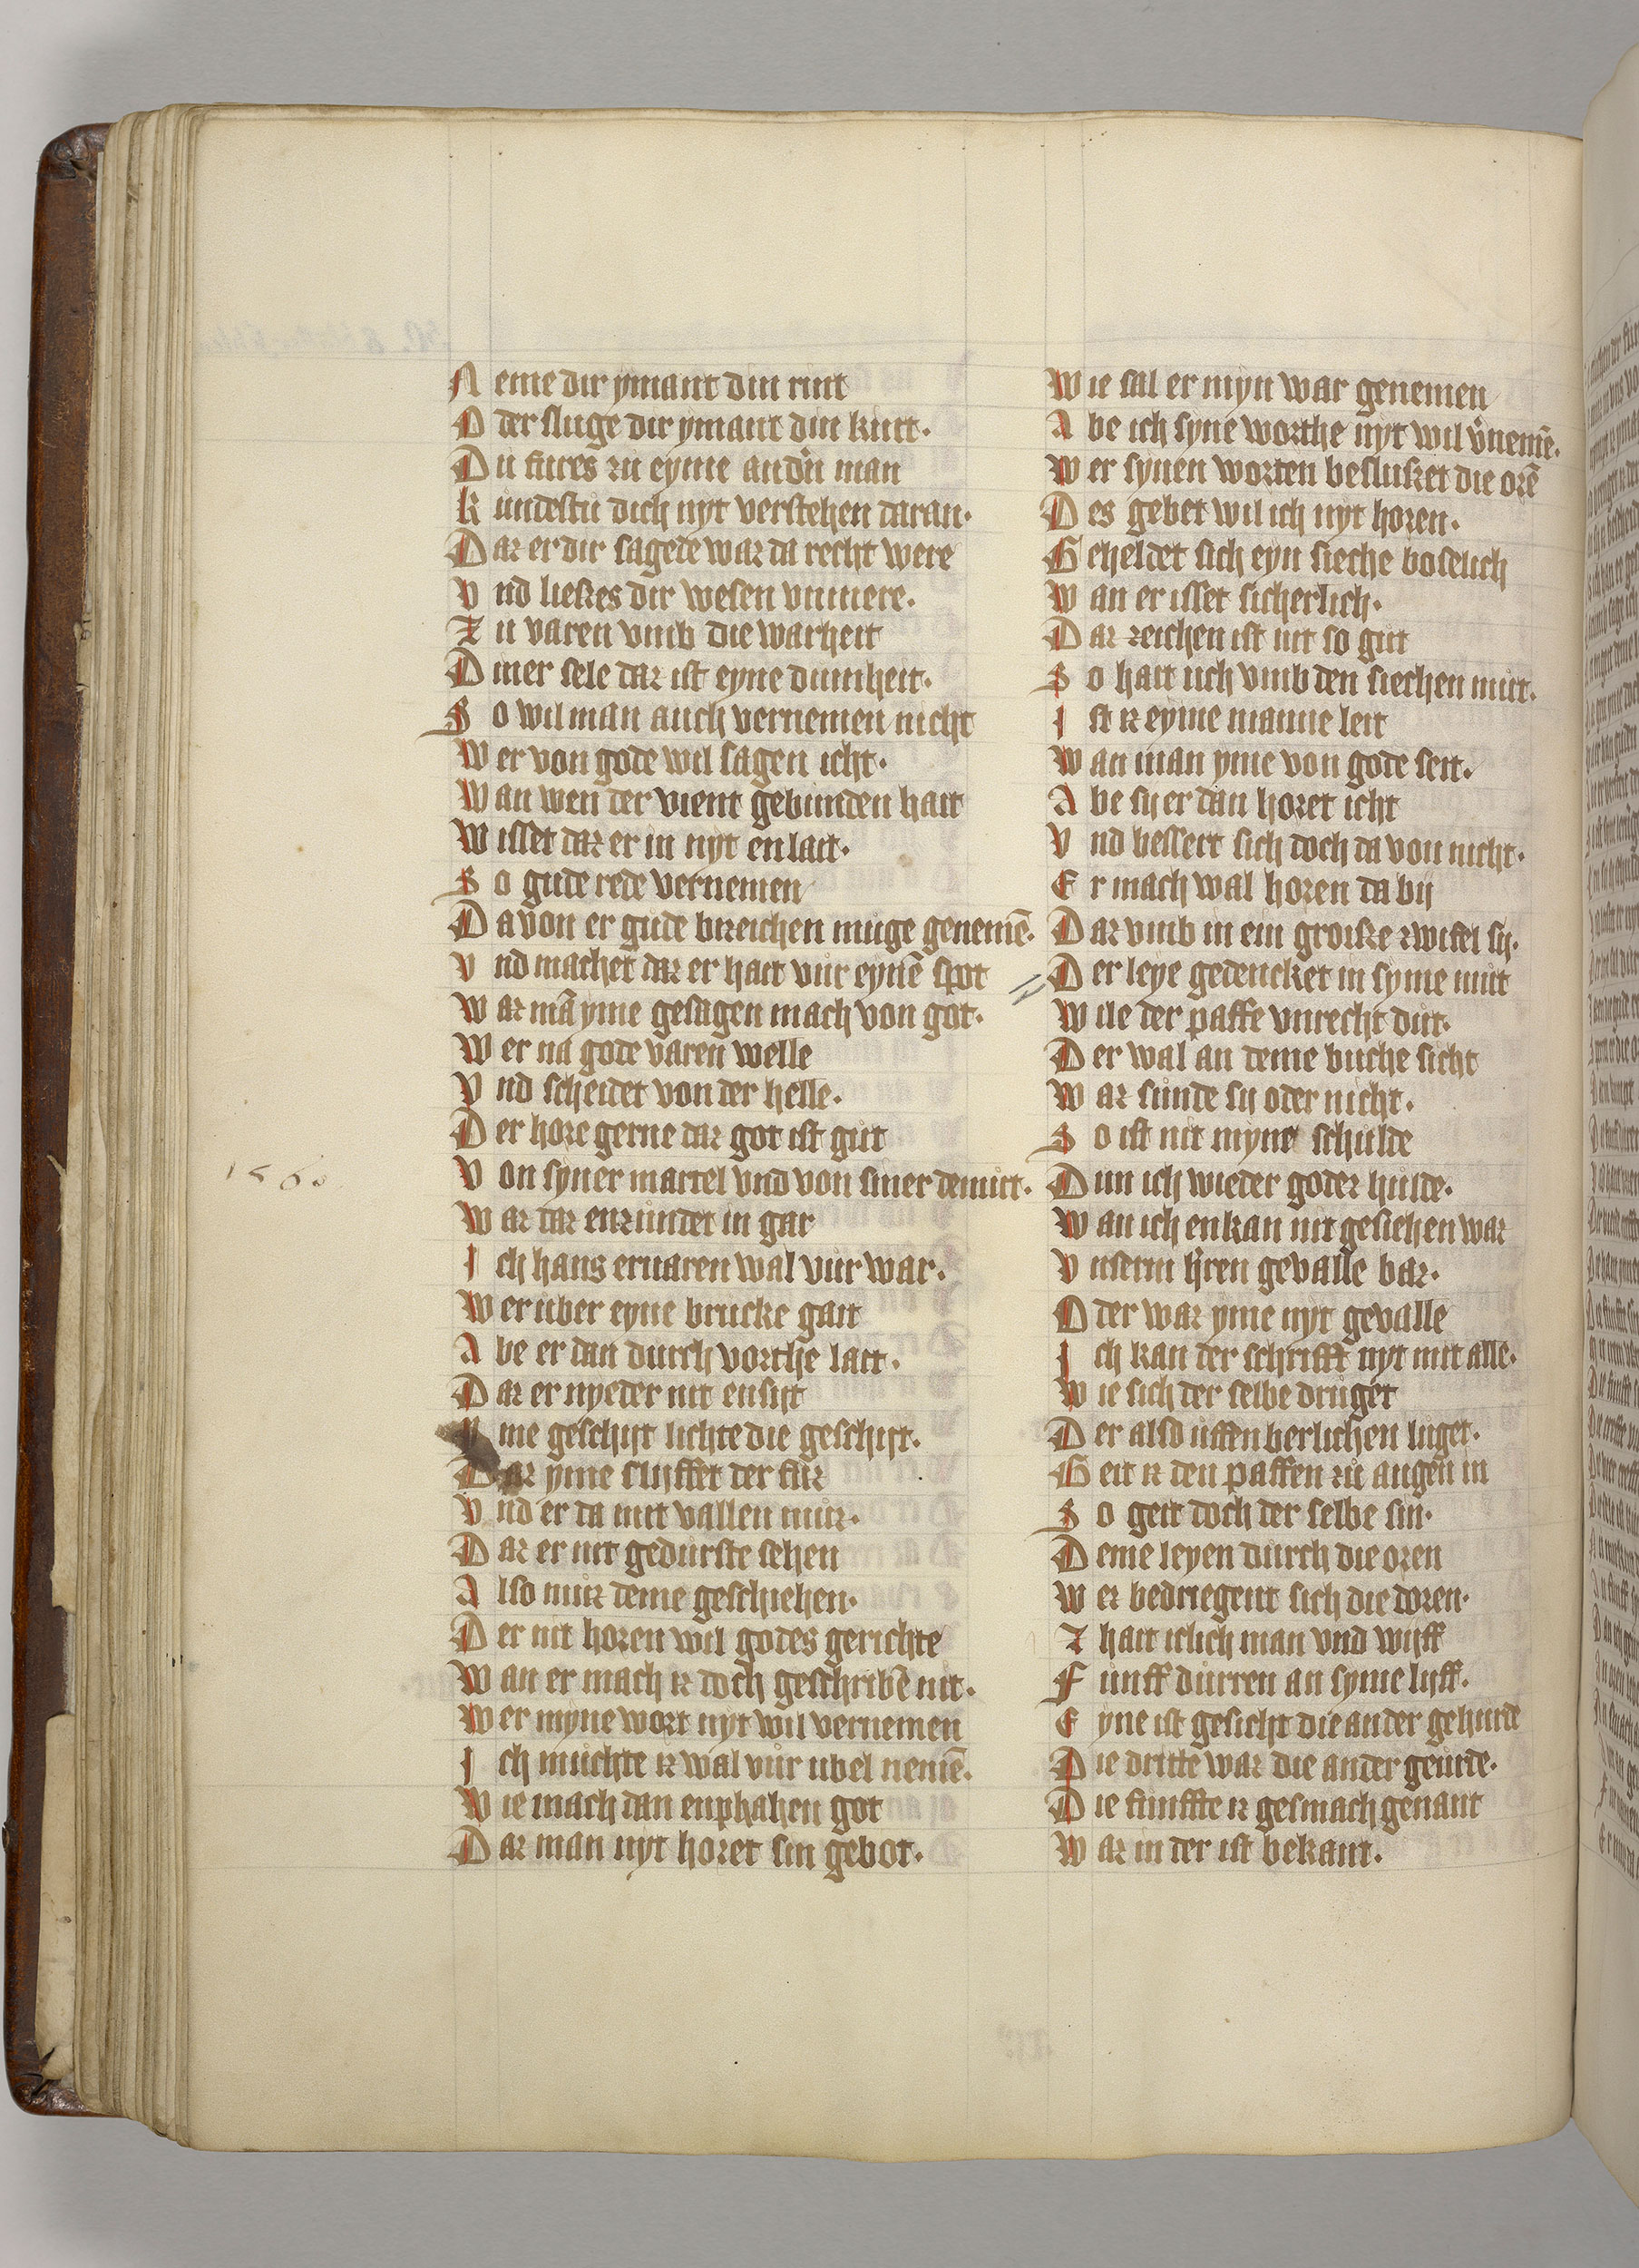 Neme dir ymant din rint
Oder sluge dir ymant din kint.
Du fures zu eyme andˀn man
Kundestu dich nyt verstehen daran.
Daz er dir sagede waz da recht were
Vnd liesses dir wesen vnmere.
Zu varen vmb die warheit
Diner sele daz ist eyne dumheit.
So wil man auch vernemen nicht
Wer von gode wil sagen icht.
Wan wen der vient gebunden hait
Wisset daz er in nyt enlait.
So gude rede vernemen
Da von er gude bzeichen muge genemē.
Vnd machet daz er hait vur eynē spot
Waz mā yme gesagen mach von got.
Wer na gode varen welle
Vnd scheidet von der helle.
Der hore gerne daz got ist gut
Von syner martel vnd von siner demut.
1560
Waz daz enzundet in gar
Ich hans eruaren wal vur war.
Wer uber eyne brucke gait
Abe er dan durch vorthe lait.
Daz er nyeder nit ensiit
Yme geschiit lichte die geschiit.
Daz yme sliiffet der fuz
Vnd er da mit vallen muz.
Daz er nit gedurste sehen
Also muz deme geschiehen.
Der nit horen wil godes gerichte
Wan er mach iz doch geschribē nit.
Wer myne wort nyt wil vernemen
Ich muchte iz wal vur ubel nemē.
Wie mach dan enphahen got
Daz man nyt horet sin gebot.
Wie sal er myn war genemen
Abe ich syne worthe nyt wil vˀnemē.
Wer synen worten beslusset die orē
Des gebet wil ich nyt horen.
Geheldet sich eyn sieche boselich
Wan er isset sicherlich.
Daz zeichen ist nit so gut
So hait iich vmb den siechen mut.
Ist iz eyme manne leit
Wan man yme von gode seit.
Abe sy er dan horet icht
Vnd bessert sich doch da von nicht.
Er mach wal horen da bij
Daz vmb in ein groisse zwifel sij.
Der leye gedencket in syme mut
Wile der paffe vnrecht dut.
Der wal an deme buche sicht
Waz sunde sij oder nicht.
So ist nit myne schulde
Dun ich wieder godez hulde.
Wan ich enkan nit gesiehen waz
Vnserm hˀren gevalle baz.
Oder waz yme nyt gevalle
Ich kan der schrifft nyt mit alle.
Wie sich der selbe druget
Der also uffenberlichen luget.
Geit iz den paffen zu augen in
So geit doch der selbe sin.
Deme leyen durch die oren
Wez bedriegent sich die doren.
Z hait iclich man vnd wijff
Funff durren an syme lijff.
Eyne ist gesicht die ander gehurde
Die dritte waz die ander geurde.
Die funffte iz gesmach genant
Waz in der ist bekant.